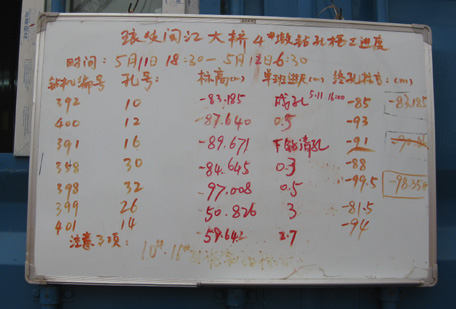 闽江大桥4#墩钻孔桩工进度
时间：5月11日18:30—5月12日6:30
钻机编号 孔号： 标高(m) 单班进尺(m) 终孔标高：(m)
392 10 -83.185 成孔 5.11 16:00 -85 -83.185
400 12 -87.640 0.5 -93
391 16 -89.671 下钻清孔 -91
358 30 -84.645 0.3 -88
398 32 -97.008 0.5 -99.5
399 26 -50.826 3 -81.5
401 14 -58.642 2.7 -94
注意事项：